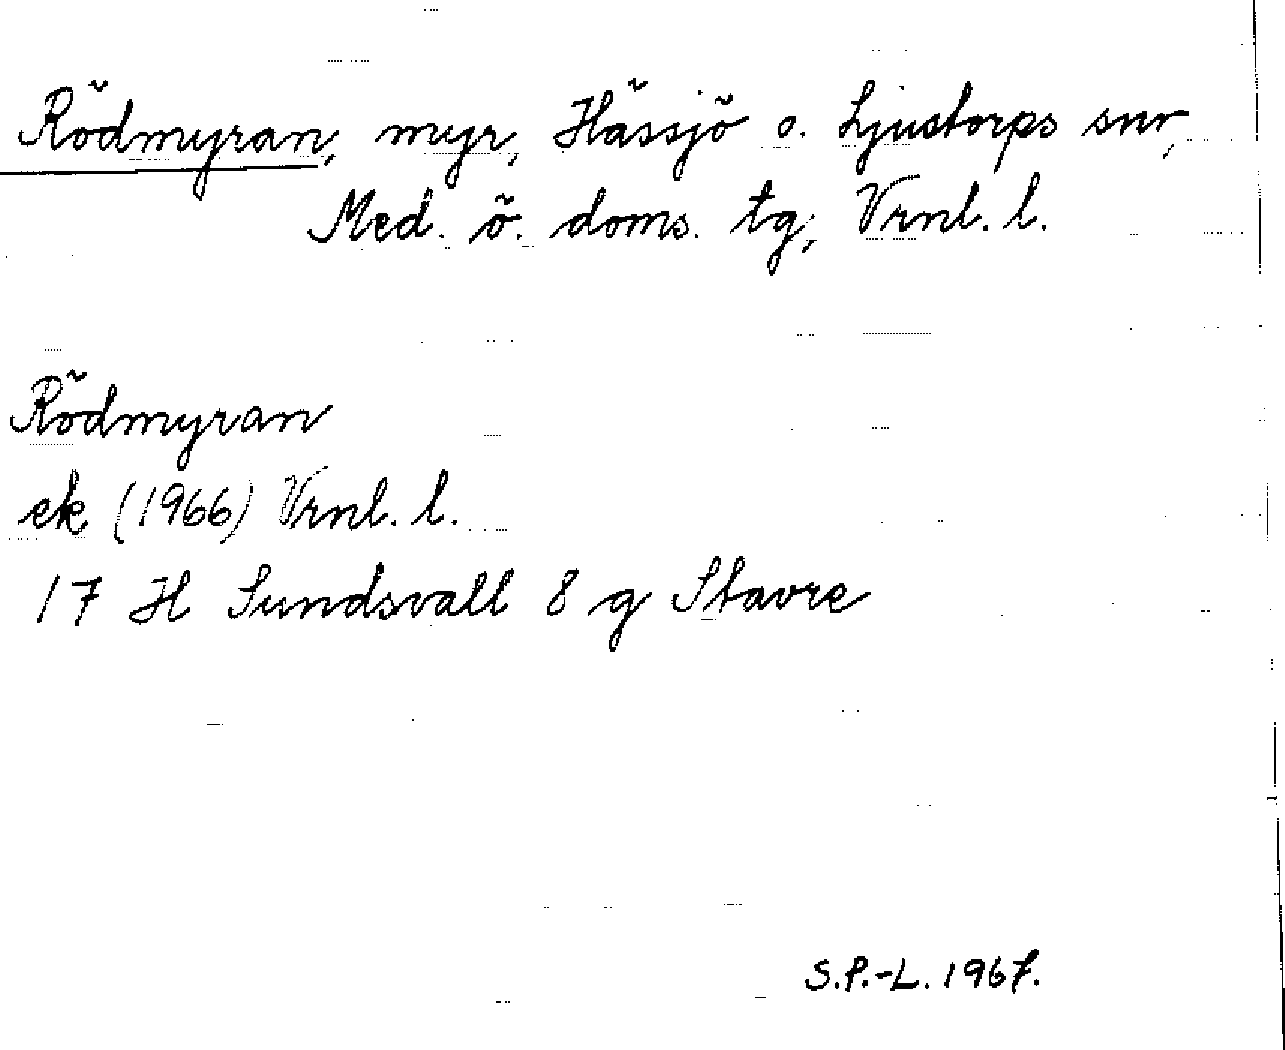 Rödmyran, myr, Hässjö o. Ljustorps snr,
Med. ö. doms. tg, Vrnl. l.
Rödmyran
ek (1966) Vrnl. l.
17 H Sundsvall 8 g Stavre
S.P.-L. 1967.